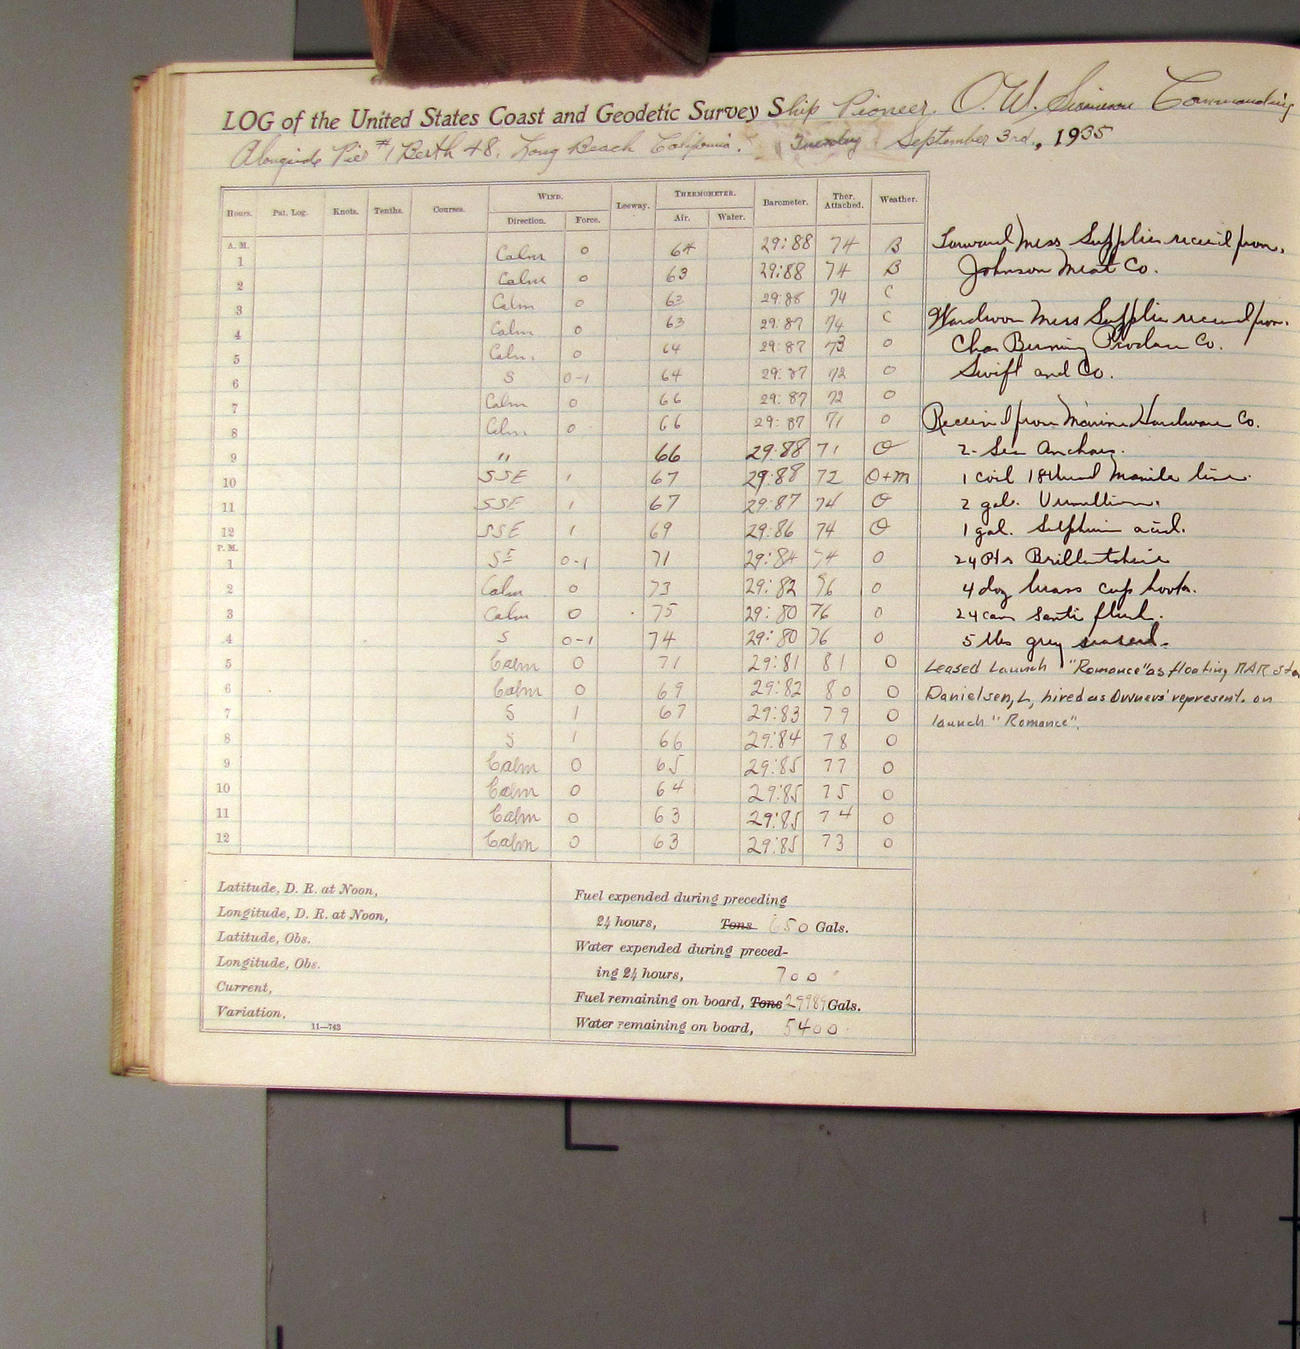 LOG of the United States Coast and Geodetic Survey Ship Pioneer. O. W. Commanding
Alongside Pier #1 Berth 48, Long Beach California. Tuesday September 3rd., 1935
Hours. Pat. Log. Knots. Tenths. Courses. WIND. Leeway. THERMOMETER. Barometer. Ther. Attached. Weather.
Direction. Force. Air. Water.
A. M.
1 Calm 0 64 29:88 74 B
2 Calm 0 63 29:88 74 B
3 Calm 0 63 29:88 74 C
4 Calm 0 63 29:87 74 C
5 Calm. 0 64 29:87 73 0
6 S 0-1 64 29:87 72 0
7 Calm 0 66 29:87 72 0
8 Calm 0 66 29:87 71 0
9 " 66 29:88 71 O
10 SSE 1 67 29:88 72 O+m
11 SSE 1 67 29:87 74 O
12 SSE 1 69 29:86 74 O
P. M.
1 SE 0-1 71 29:84 74 0
2 Calm 0 73 29:82 76 0
3 Calm 0 75 29:80 76 0
4 S 0-1 74 29:80 76 0
5 Calm 0 71 29:81 81 O
6 Calm 0 69 29:82 80 O
7 S 1 67 29:83 79 O
8 S 1 66 29:84 78 O
9 Calm 0 65 29:85 77 O
10 Calm 0 64 29:85 75 O
11 Calm 0 63 29:85 74 O
12 Calm 0 63 29:85 73 O
Forward Mess Supplies received from.
Johnson Meat Co.
Wardroom Mess Supplies received from.
Chas Produce Co.
Swift and Co.
Received from Marine Hardware Co.
2- Sea Anchors.
1 coil 18 thread Manila line.
2 gal. Vermillion.
1 gal. Sulphuric acid.
24 Pts Brilliantshine
4 doz brass cup hooks.
24 cans Sani flush.
5 lbs grey
Leased Launch "Romance" as floating RAR sta
Danielsen, L, hired as Owners' represent. on
launch "Romance".
Latitude, D. R. at Noon,
Longitude, D. R. at Noon,
Latitude, Obs.
Longitude, Obs.
Current,
Variation,
11—743
Fuel expended during preceding
24 hours, Tons 650 Gals.
Water expended during preced-
ing 24 hours, 700 "
Fuel remaining on board, Tons Gals.
Water remaining on board, 5400